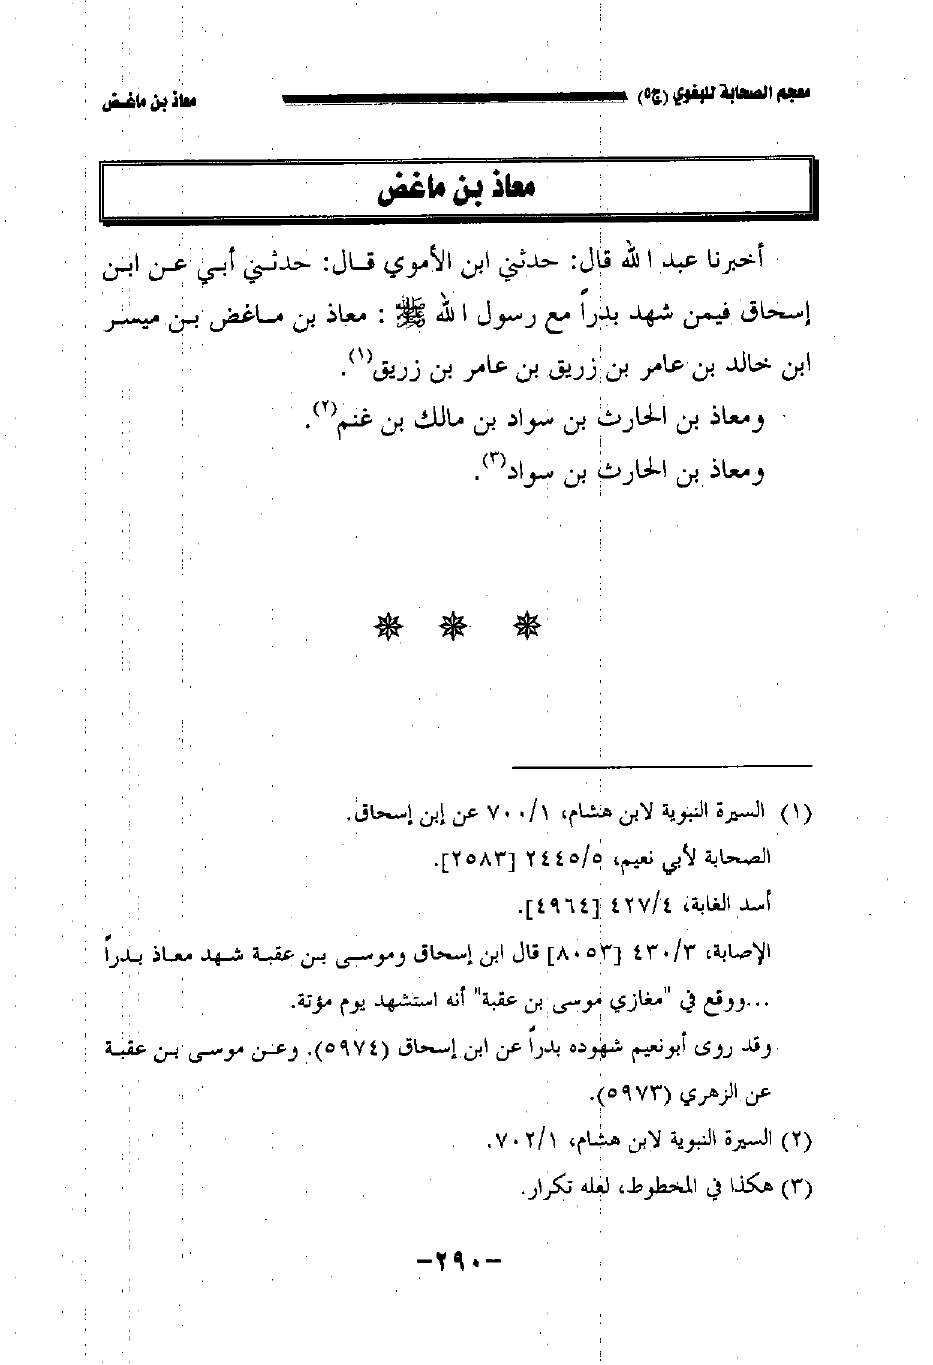 معجم الصحابة للبغوي (ج٥) معاذ بن ماغض
معاذ بن ماغض
أخبرنا عبد الله قال: حدثني ابن الأموي قال: حدثني أبي عن ابن
إسحاق فيمن شهد بدراً مع رسول الله ﷺ : معاذ بن ماغض بن ميسر
ابن خالد بن عامر بن زريق بن عامر بن زريق(١).
ومعاذ بن الحارث بن سواد بن مالك بن غنم(٢).
ومعاذ بن الحارث بن سواد(٣).
(١) السيرة النبوية لابن هشام، ٧٠٠/١ عن إبن إسحاق.
الصحابة لأبي نعيم، ٢٤٤٥/٥ [٢٥٨٣].
أسد الغابة، ٤٢٧/٤ [٤٩٦٤].
الإصابة، ٤٣٠/٣ [٨٠٥٣] قال ابن إسحاق وموسى بن عقبة شهد معاذ بدراً
...ووقع في "مغازي موسى بن عقبة" أنه استشهد يوم مؤتة.
وقد روى أبونعيم شهوده بدراً عن ابن إسحاق (٥٩٧٤). وعن موسى بن عقبة
عن الزهري (٥٩٧٣).
(٢) السيرة النبوية لابن هشام، ٧٠٢/١.
(٣) هكذا في المخطوط، لعله تكرار.
-٢٩٠-